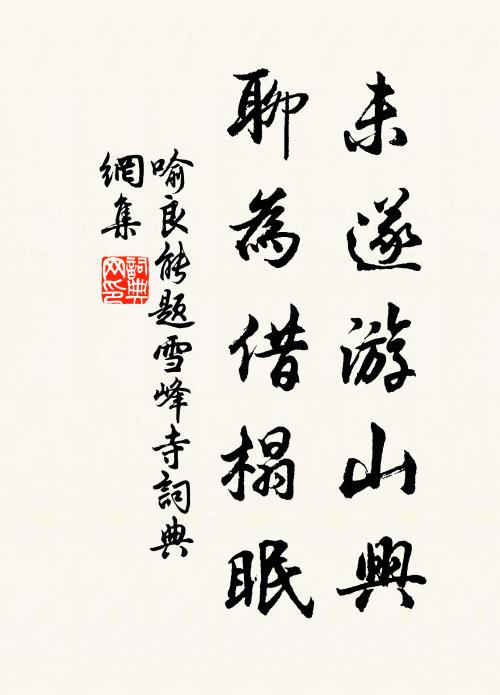 未遂游山興
聊為借榻眠
喻良能題雪峰寺詞典
網集
詞典
网印